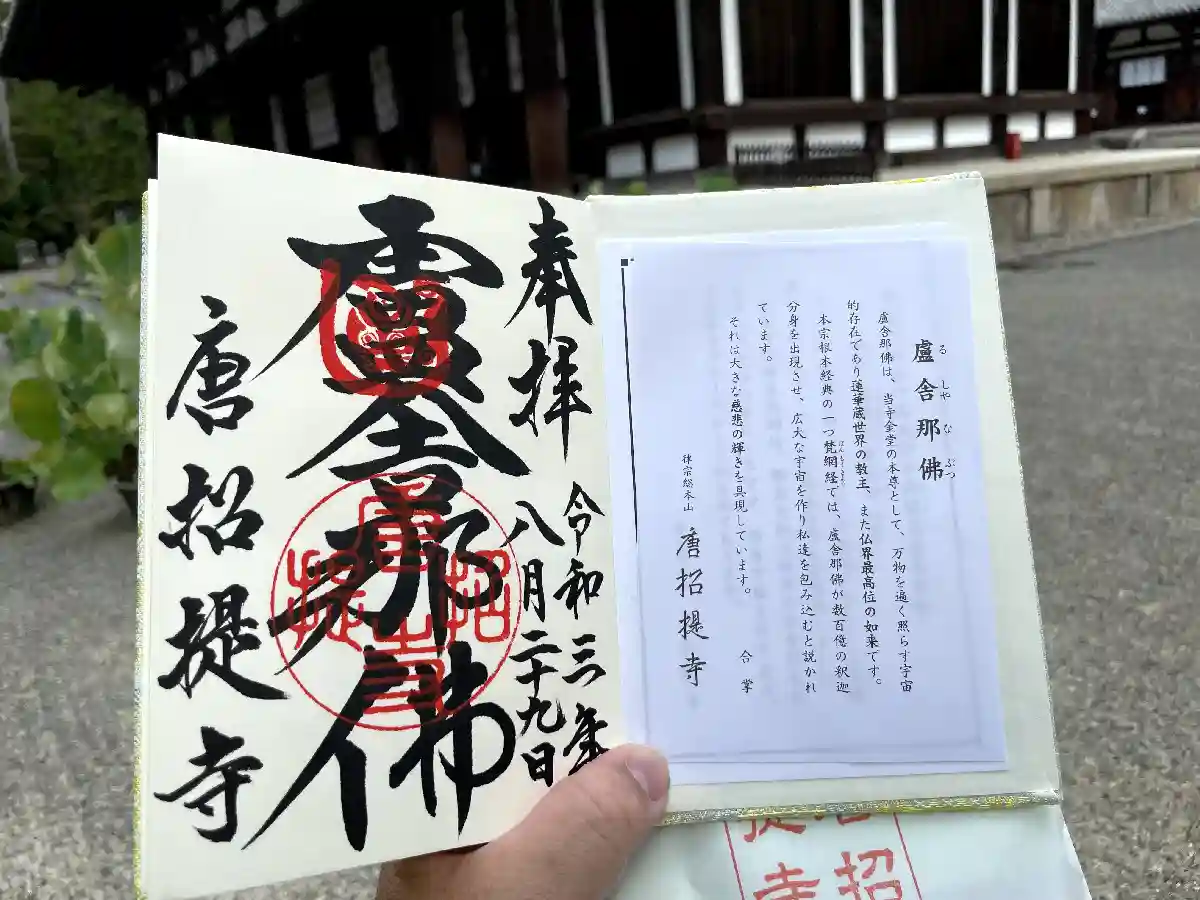 奉拝
令和三年
八月二十九日
盧舎那佛
唐招提寺
盧舎那佛
るしやなぶつ
盧舎那佛は、当寺金堂の本尊として、万物を遍く照らす宇宙
的存在であり蓮華蔵世界の教主、また仏界最高位の如来です。
本宗根本経典の一つ梵網経では、盧舎那佛が数百億の釈迦
分身を出現させ、広大な宇宙を作り私達を包み込むと説かれ
ています。
それは大きな慈悲の輝きを具現しています。
合掌
律宗総本山
唐招提寺
招
提寺